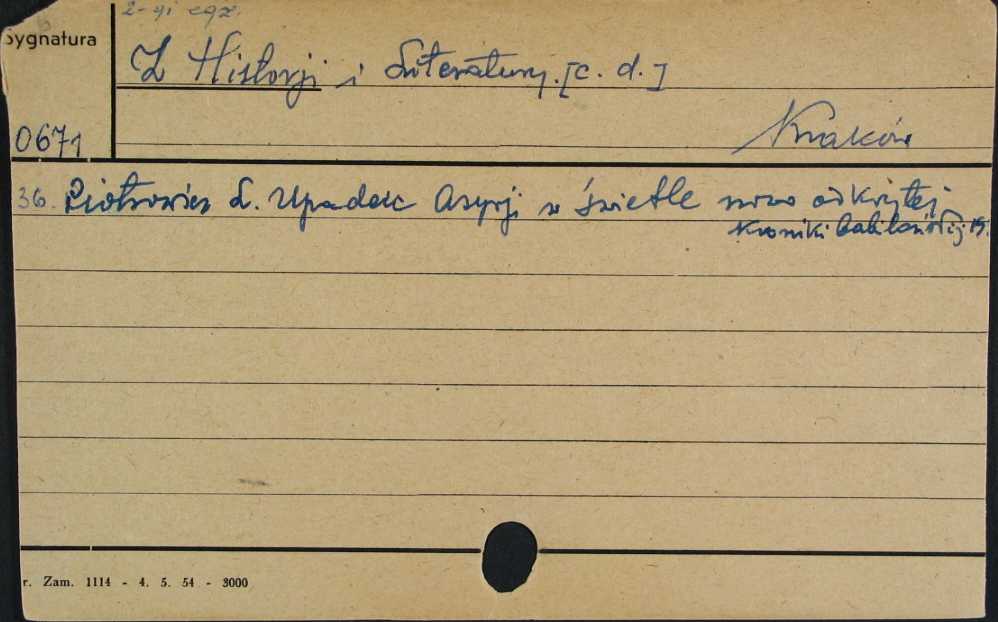 2-gi egz.
Sygnatura
Z Historji i Literatury. [c. d.]
0671
Kraków
36. Piotrowicz L. Upadek Asyrji w świetle nowo odkrytej
Kroniki babilońskiej. 19.
r. Zam. 1114 - 4. 5. 54 - 3000